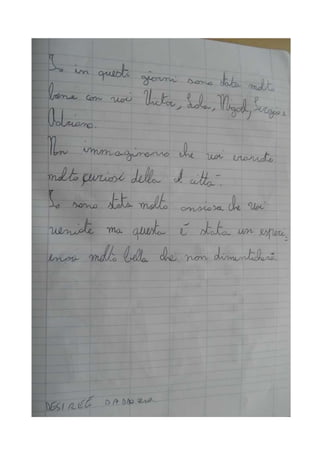 Io in questi giorni sono stata molt
bene con voi Victor, Lola, Magali,
Adriano.
Non immaginavo che voi eravate
molto curiosi della città.
Io sono stata molto ansiosa che voi
venide ma questa è stata un esperi,
enza molto bella che non dimenticherò
DESIREÈ